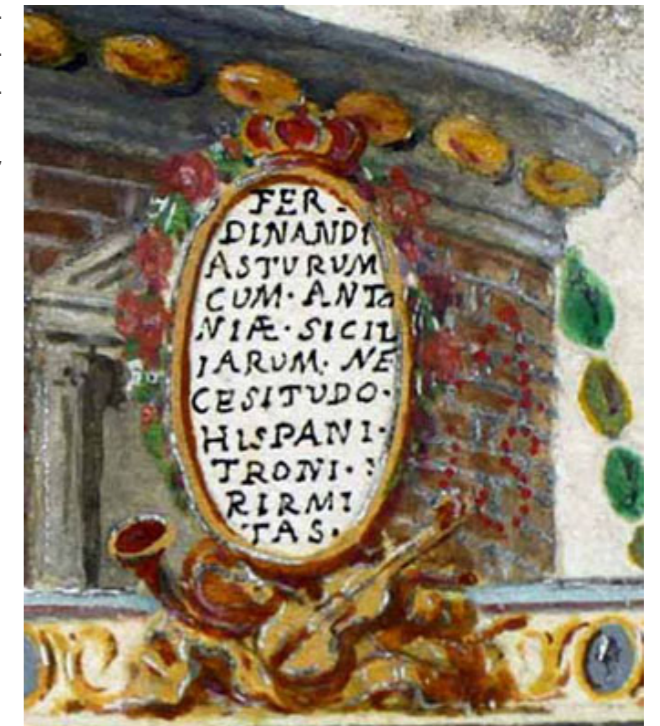 FER-
DINANDI
ASTURUM
CUM· ANTO
NIÆ· SICIL
IARUM· NE
CESITUDO·
HISPANI·
TRONI· :
RIRMI
TAS·